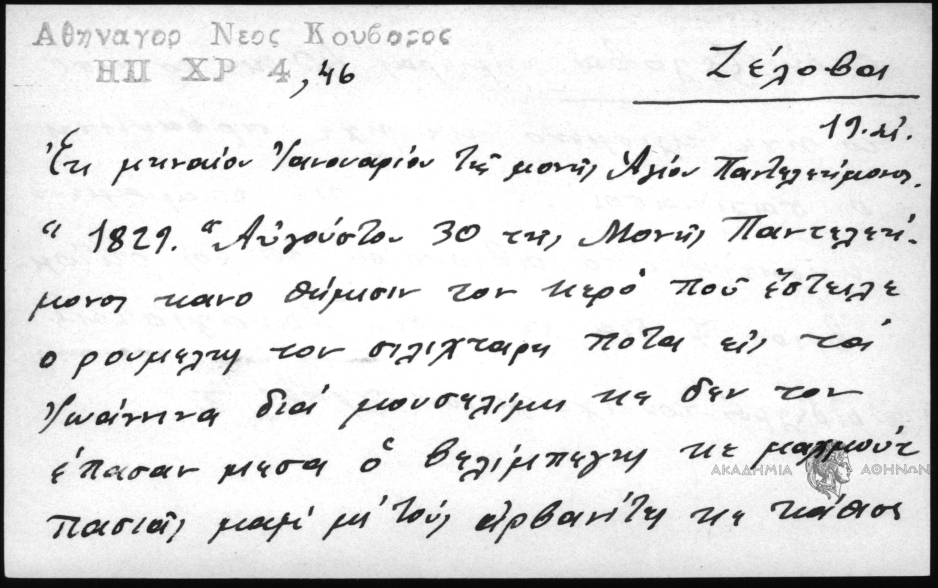 Αθηναγορ Νεος Κουβαρας
ΗΠ ΧΡ 4, 46
Ζέλοβαι
19. αι.
Ἐκ μηναίου Ἰανουαρίου τῆς μονῆς Ἁγίου Παντελεήμονος.
" 1829. "Αὐγούστου 30 της Μονῆς Παντελεή-
μονος κανο θύμισιν τον κερό ποῦ ἔστειλε
ο ρουμελης τον σιλιχταρη πότα εἰς τά
Ἰωάννινα διά μουσελίμη κε δεν τον
έπασαν μεσα ὁ βελίμπεγης κε μαχμούτ
πασιᾶς μαζί μέ τούς αρβανίτες κε κάθισε
ΑΚΑΔΗΜΙΑ ΑΘΗΝΩΝ